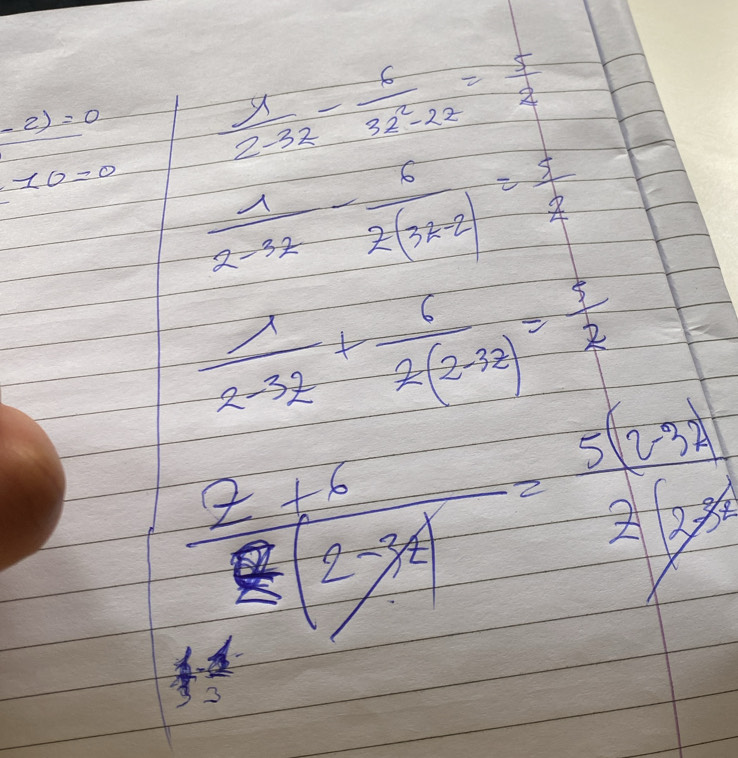 -2)=0
-10=0
1/(2-3z) - 6/(3z²-2z) = 5/z
1/(2-3z) - 6/(z(3z-2)) = 5/z
1/(2-3z) + 6/(z(2-3z)) = 5/z
(z+6)/(z(2-3z)) = 5(2-3z)/(z(2-3z))